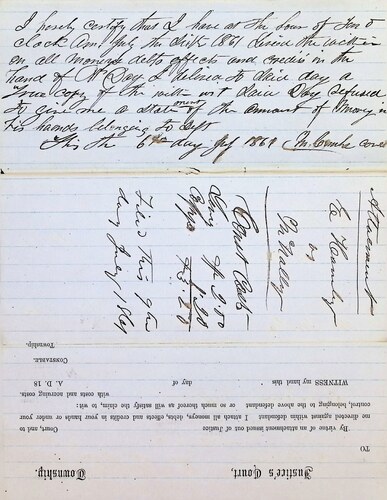 I hereby certify that I have at the hour of Ten o
Clock Am July the Sixth 1869 levied the within
on all moneys debts effects and credits in the
hand of Day I delivered to said day a
True copy of the within writ said Day refused
to give me a statement of the amount of money in
his hands belonging to Deft
This the 6th day of July 1869 McCombs const
Attachment
E Hamby
vs
McNalley
Court Cost
2.00
Copys
Filed This 9th
day July 1869
Justice's Court, Township,
TO
By virtue of an attachment issued out of Justice Court, and to
me directed against within defendant I attach all moneys, debts, effects and credits in your hands or under your
control, belonging to the above defendant or so much thereof as will satisfy the claim, to wit:
with costs and accruing costs.
WITNESS my hand this day of A. D. 18
CONSTABLE.
Township.